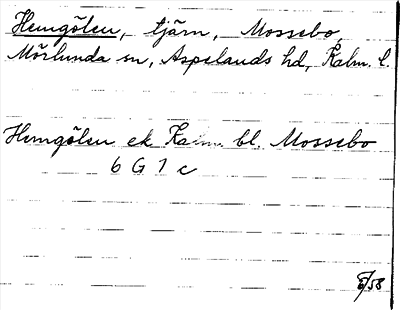 Hemgölen, tjärn, Mossebo,
Mörlunda sn, Aspelands hd, Kalm. l.
Hemgölen ek Kalm. bl. Mossebo
6 G 1 c
58